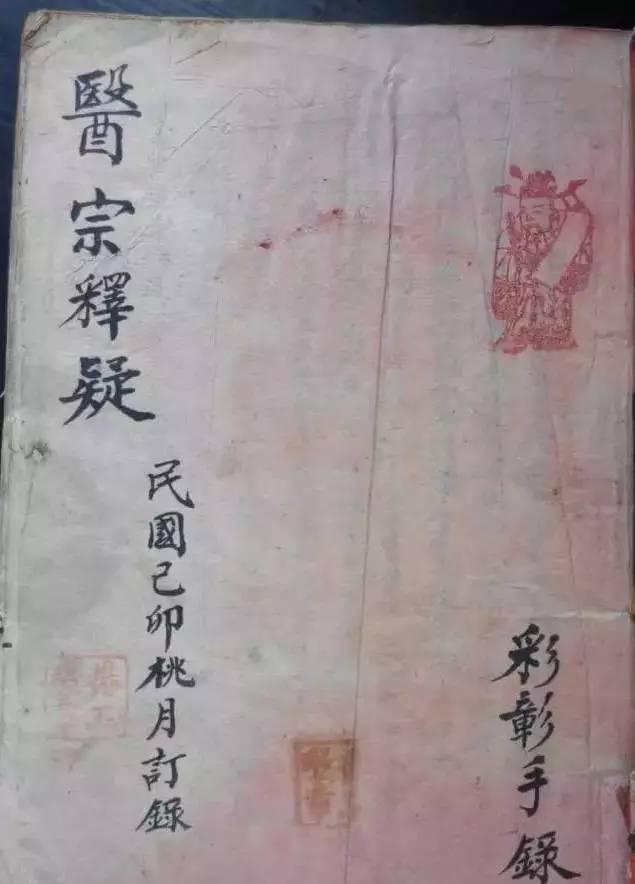 醫宗釋疑
民國己卯桃月訂錄
彩彰手錄